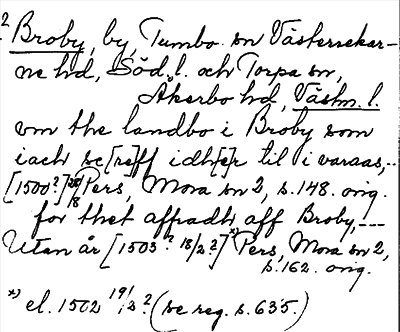 2 Broby, by, Tumbo sn Västerrekar-
ne hd, Söd. l. och Torpa sn,
Åkerbo hd, Västm. l.
vm the landbo i Broby som
iach sc[re]ff idh[e]r til i varaas,--
[1500?] 28/8 Pers, Mora sn 2, s. 148. orig.
for thet affradh aff Broby,---
Utan år [1503? 18/2?]*) Pers, Mora sn 2,
s. 162. orig.
*) el. 1502 19/2? (se reg. s. 635.)